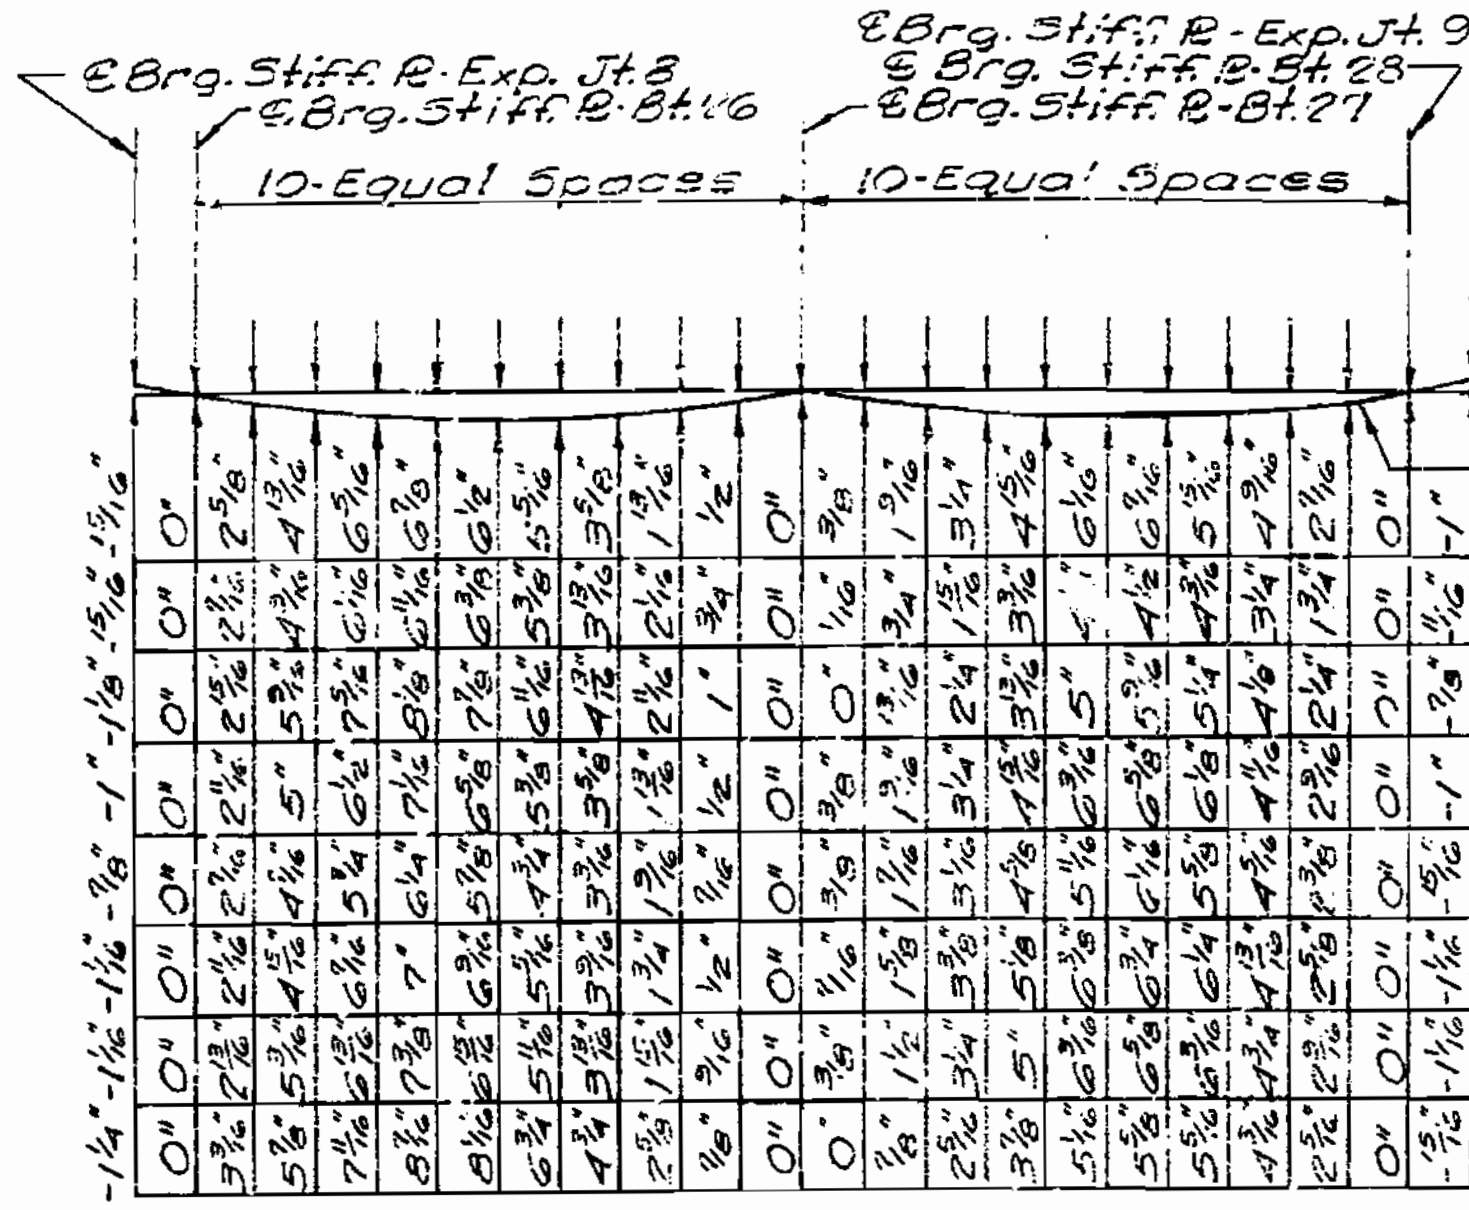 ℄ Brg. Stiff. ℞ - Exp. Jt. 8
℄ Brg. Stiff. ℞ - Bt. 26
℄ Brg. Stiff. ℞ - Exp. Jt. 9
℄ Brg. Stiff. ℞ - Bt. 28
℄ Brg. Stiff. ℞ - Bt. 27
10-Equal Spaces
10-Equal Spaces
-15/16" 0" 2 5/8" 4 13/16" 6 5/16" 6 7/8" 6 1/2" 5 5/16" 3 5/8" 1 13/16" 1/2" 0" 3/8" 1 9/16" 3 1/4" 4 15/16" 6 1/16" 6 7/16" 5 15/16" 4 9/16" 2 7/16" 0" -1"
-15/16" 0" 2 7/16" 4 3/16" 6 1/16" 6 11/16" 6 3/8" 5 3/8" 3 13/16" 2 1/16" 3/4" 0" 1/16" 3/4" 1 15/16" 3 3/16" 4 1/2" 4 3/16" 3 1/4" 1 3/4" 0" -11/16"
-1 1/8" 0" 2 15/16" 5 9/16" 7 5/16" 8 1/8" 7 7/8" 6 11/16" 4 13/16" 2 11/16" 1" 0" 0" 13/16" 2 1/4" 3 13/16" 5" 5 9/16" 5 1/4" 4 1/8" 2 1/4" 0" -7/8"
-1" 0" 2 11/16" 5" 6 1/2" 7 1/16" 6 5/8" 5 3/8" 3 5/8" 1 13/16" 1/2" 0" 3/8" 1 9/16" 3 1/4" 4 15/16" 6 3/16" 6 5/8" 6 1/8" 4 11/16" 2 9/16" 0" -1"
-7/8" 0" 2 7/16" 4 5 3/4" 6 1/4" 5 7/8" 4 3/4" 3 3/16" 1 9/16" 7/16" 0" 3/8" 1 7/16" 3 1/16" 4 5/8" 5 11/16" 6 1/16" 5 5/8" 4 5/16" 2 3/8" 0" -15/16"
-1 1/16" 0" 2 11/16" 4 15/16" 6 7/16" 7" 6 9/16" 5 5/16" 3 9/16" 1 3/4" 1/2" 0" 1 5/8" 3 3/8" 5 1/8" 6 3/8" 6 3/4" 6 1/4" 4 13/16" 2 5/8" 0" -1 1/16"
-1 1/16" 0" 2 13/16" 5 3/16" 6 13/16" 7 3/8" 6 15/16" 5 11/16" 3 13/16" 1 15/16" 9/16" 0" 3/8" 1 1/2" 3 1/4" 5" 6 3/16" 6 5/8" 6 3/16" 4 3/4" 2 9/16" 0" -1 1/16"
-1 1/4" 0" 3 3/16" 5 7/8" 7 11/16" 8 7/16" 8 1/16" 6 3/4" 4 3/4" 2 5/8" 7/8" 0" 0" 7/8" 2 5/16" 3 7/8" 5 1/16" 5 5/8" 5 5/16" 4 3/16" 2 5/16" 0" -15/16"